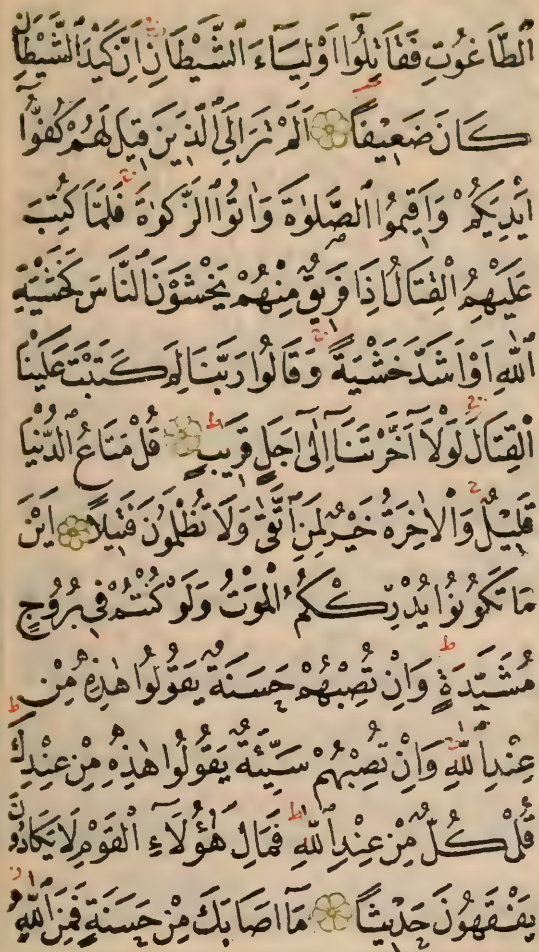 الطَّاغُوتِ فَقَاتِلُوا اَوْلِيَاءَ الشَّيْطَانِ اِنَّ كَيْدَ الشَّيْطَانِ
كَانَ ضَعِيفًا اَلَمْ تَرَ اِلَى الَّذِينَ قِيلَ لَهُمْ كُفُّوا
اَيْدِيَكُمْ وَاَقِيمُوا الصَّلٰوةَ وَاٰتُوا الزَّكٰوةَ فَلَمَّا كُتِبَ
عَلَيْهِمُ الْقِتَالُ اِذَا فَرِيقٌ مِنْهُمْ يَخْشَوْنَ النَّاسَ كَخَشْيَةِ
اللّٰهِ اَوْ اَشَدَّ خَشْيَةً وَقَالُوا رَبَّنَا لِمَ كَتَبْتَ عَلَيْنَا
الْقِتَالَ لَوْلَا اَخَّرْتَنَا اِلٰى اَجَلٍ قَرِيبٍ قُلْ مَتَاعُ الدُّنْيَا
قَلِيلٌ وَالْاٰخِرَةُ خَيْرٌ لِمَنِ اتَّقٰى وَلَا تُظْلَمُونَ فَتِيلًا اَيْنَ
مَا تَكُونُوا يُدْرِكْكُمُ الْمَوْتُ وَلَوْ كُنْتُمْ فِى بُرُوجٍ
مُشَيَّدَةٍ وَاِنْ تُصِبْهُمْ حَسَنَةٌ يَقُولُوا هٰذِهِ مِنْ
عِنْدِ اللّٰهِ وَاِنْ تُصِبْهُمْ سَيِّئَةٌ يَقُولُوا هٰذِهِ مِنْ عِنْدِكَ
قُلْ كُلٌّ مِنْ عِنْدِ اللّٰهِ فَمَالِ هٰؤُلَاءِ الْقَوْمِ لَا يَكَادُونَ
يَفْقَهُونَ حَدِيثًا مَا اَصَابَكَ مِنْ حَسَنَةٍ فَمِنَ اللّٰهِ